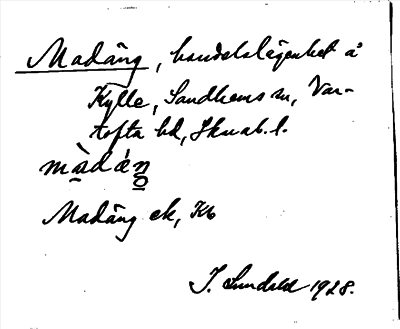 Madäng, handelslägenhet å
Kylle, Sandhems sn, Var-
tofta hd, Skarab. l.
màdáŋ
Madäng ek, Kb
J. Lundahl 1928.